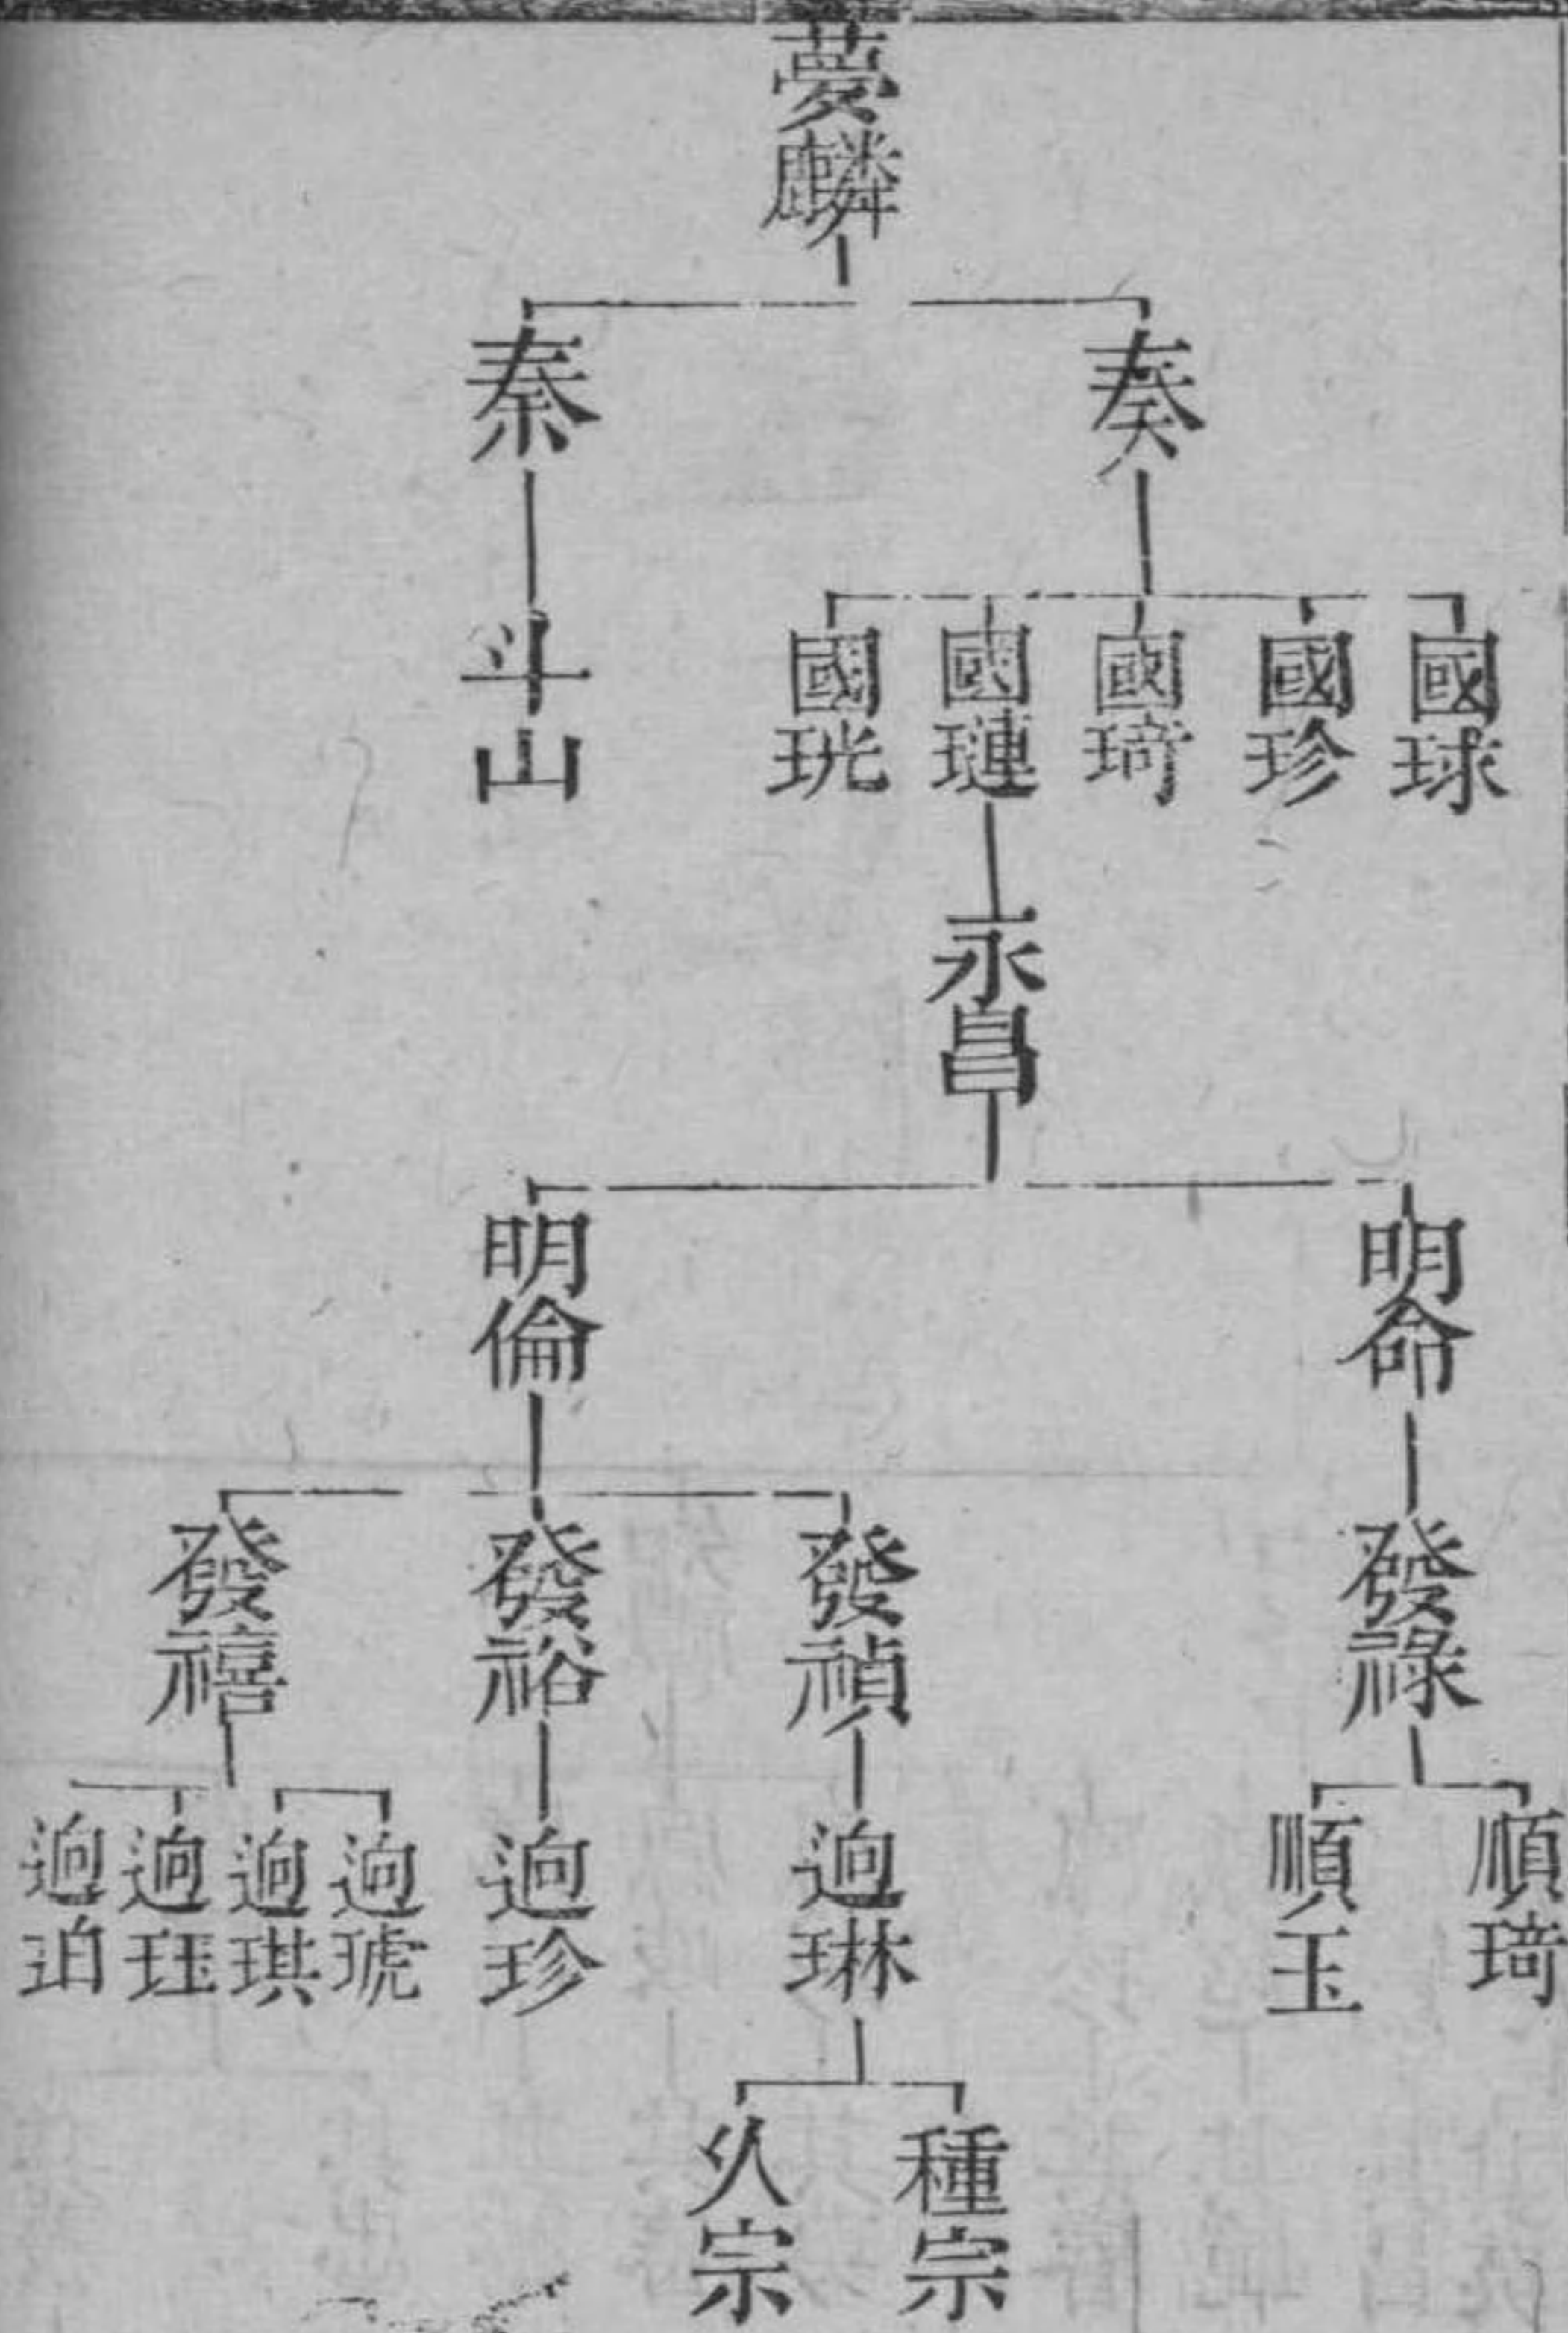 夢麟
奏
秦
國球
國珍
國琦
國璉
國珖
斗山
永昌
明命
明倫
發祿
發禎
發裕
發禧
順琦
順玉
逈琳
逈珍
逈琥
逈琪
逈珏
逈珀
種宗
久宗